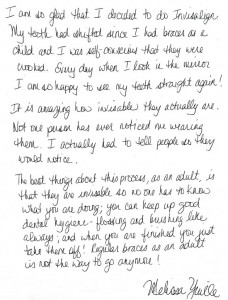 I am so glad that I decided to do Invisalign.
My teeth had shifted since I had braces as a
child and I was self-conscious that they were
crooked. Every day when I look in the mirror
I am so happy to see my teeth straight again!
It is amazing how invisable they actually are.
Not one person has ever noticed me wearing
them. I actually had to tell people or they
would notice.
The best things about this process, as an adult, is
that they are invisible so no one has to know
what you are doing; you can keep up good
dental hygiene - flossing and brushing like
always; and when you are finished you just
take them off! Regular braces as an adult
is not the way to go anymore!
Melissa